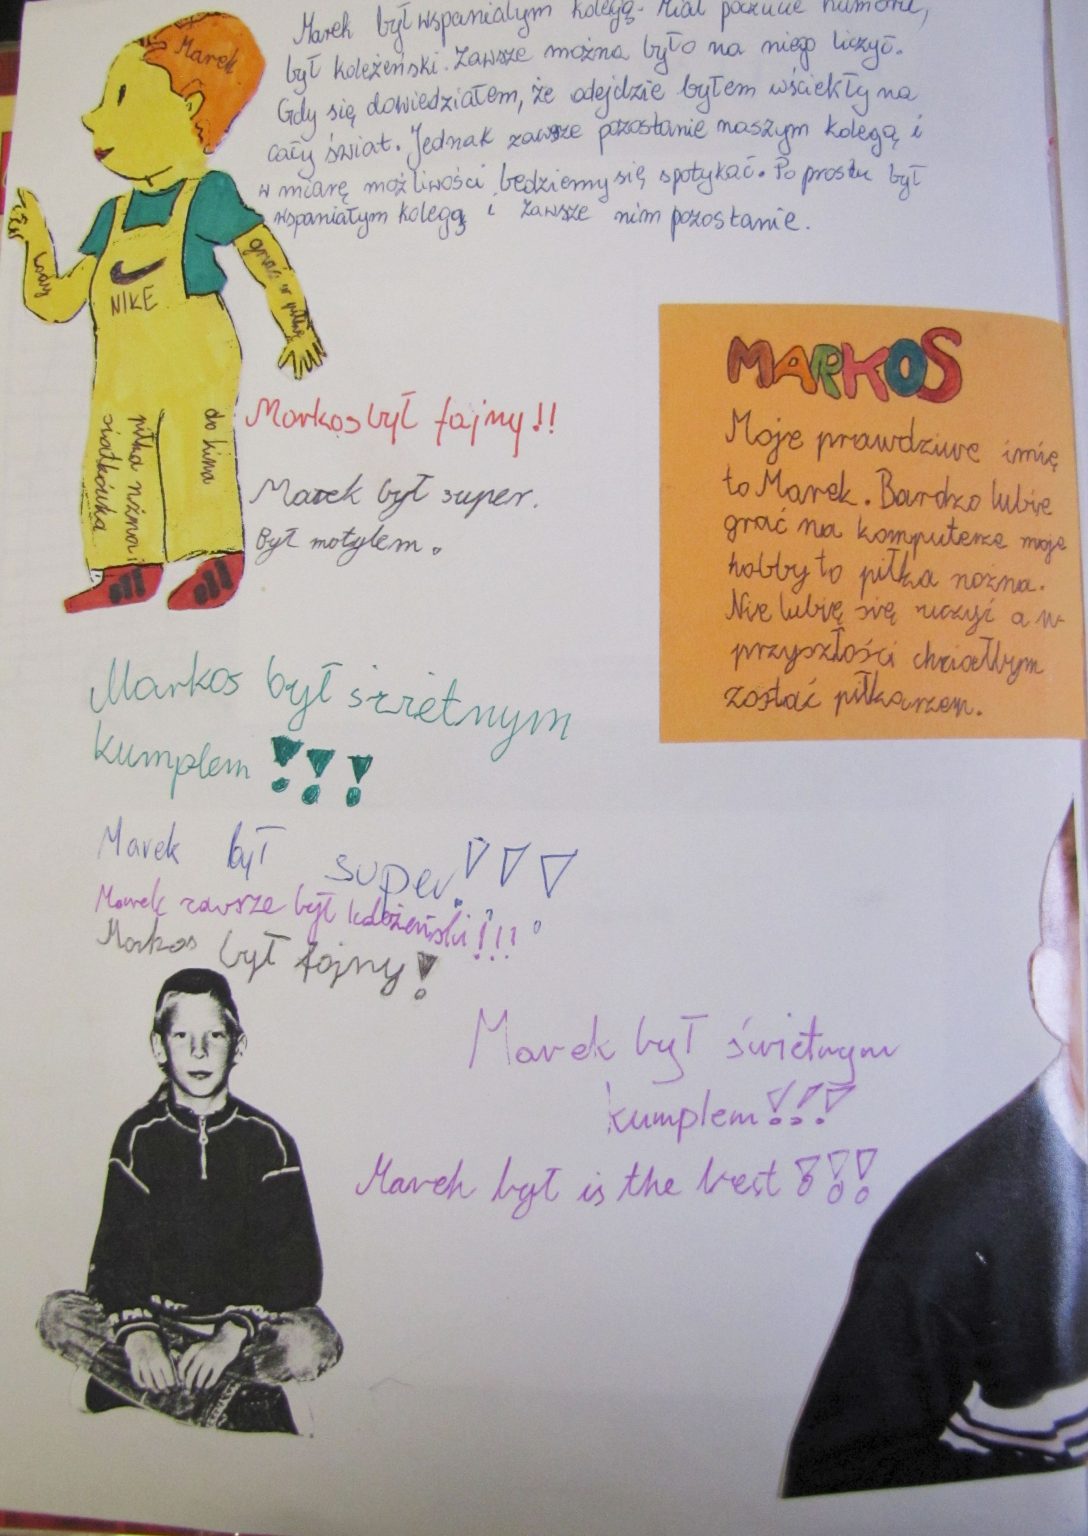 Marek był wspaniałym kolegą. Miał poczucie humoru,
był koleżeński. Zawsze można było na niego liczyć.
Gdy się dowiedziałem, że odejdzie byłem wściekły na
cały świat. Jednak zawsze pozostanie naszym kolegą i
w miarę możliwości będziemy się spotykać. Po prostu był
wspaniałym kolegą i zawsze nim pozostanie.
Marek
grać w piłkę
NIKE
piłka nożna i
siatkówka
do kina
Markos był fajny!!
Marek był super.
Był motylem.
MARKOS
Moje prawdziwe imię
to Marek. Bardzo lubię
grać na komputerze moje
hobby to piłka nożna.
Nie lubię się uczyć a w
przyszłości chciałbym
zostać piłkarzem.
Markos był świetnym
kumplem!!!
Marek był super!!!
Marek zawsze był koleżeński!!!
Markos był fajny!
Marek był świetnym
kumplem!!!
Marek był is the best!!!